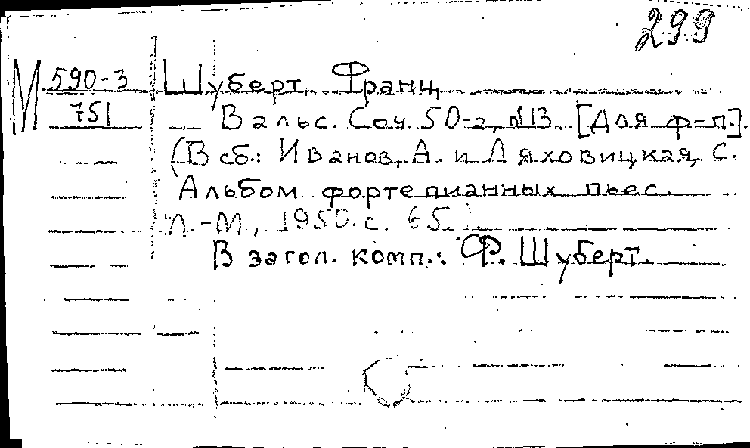 299
М 590-3 Шуберт, Франц
751 Вальс. Соч. 50-а, №13. [Для ф-п.].
(В сб.: Иванов, А. и Ляховицкая, С.
Альбом фортепианных пьес.
Л.-М., 1950. с. 65.
В загол. комп.: Ф. Шуберт.